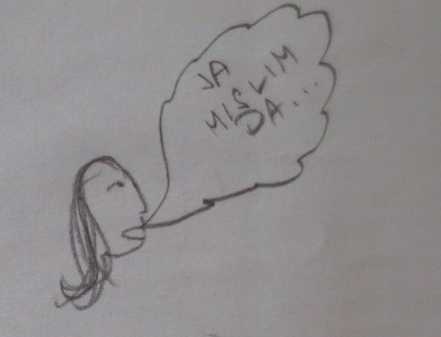 JA
MISLIM
DA...